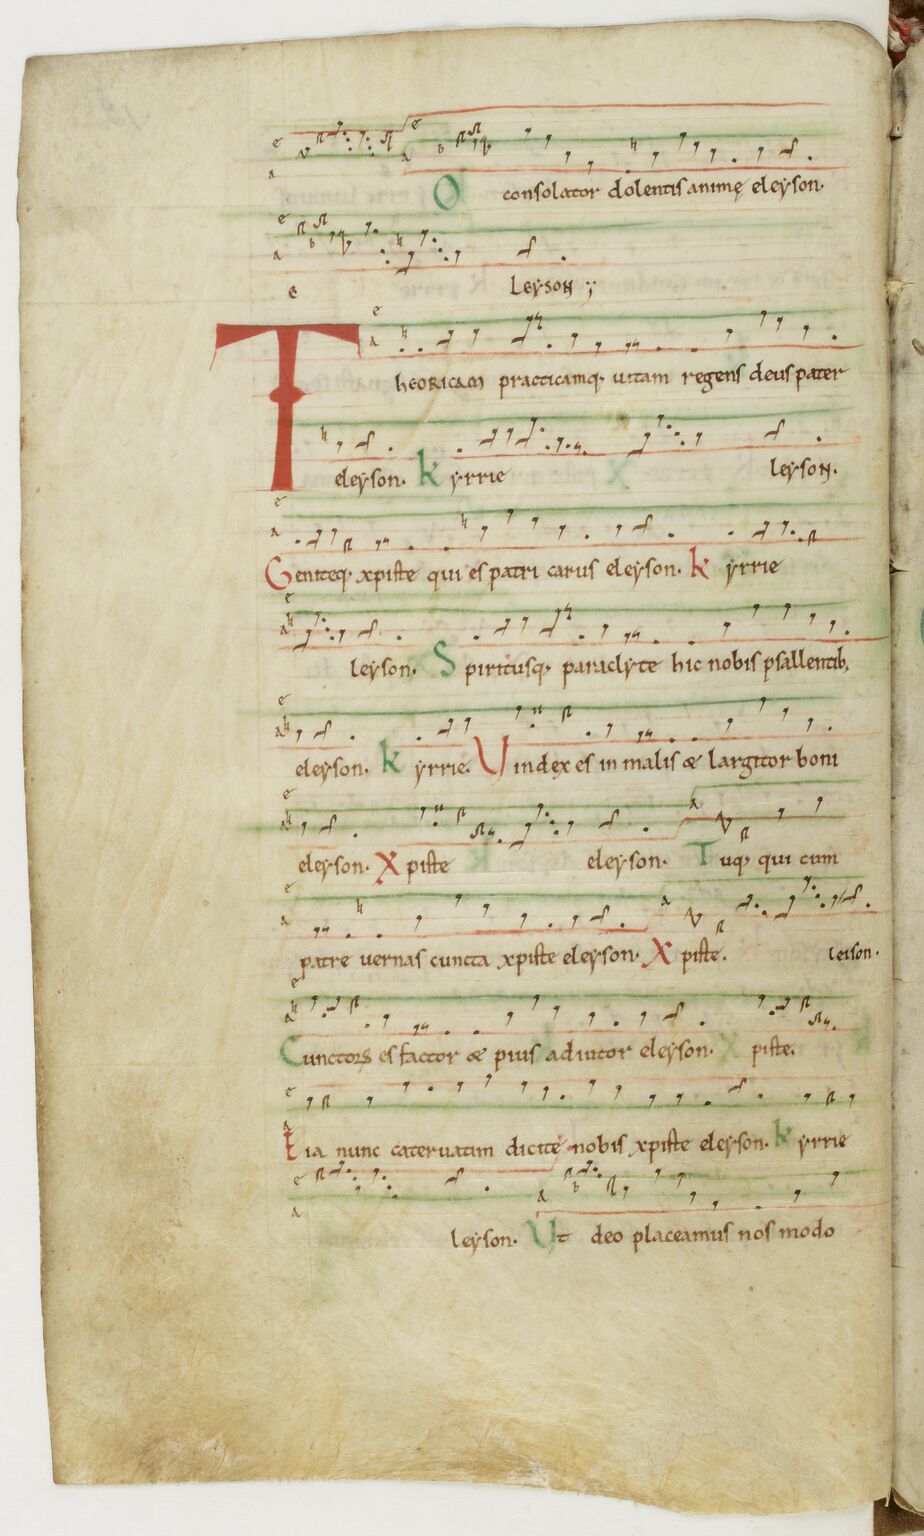 O consolator dolentis animę eleyson.
e leyson y
Theoricam practicamq. uitam regens deus pater
eleyson. Kyrrie leyson.
Geniteq. xpiste qui es patri carus eleyson. Kyrrie
leyson. Spiritusq. paraclyte hic nobis psallentib;
eleyson. Kyrrie. Uindex es in malis & largitor boni
eleyson. Xpiste eleyson. Tuq. qui cum
patre uernas cuncta xpiste eleyson. Xpiste. leison.
Cunctors es factor & pius adiutor eleyson. Xpiste.
Eia nunc cateruatim dicite nobis xpiste eleyson. Kyrrie
leyson. Ut deo placeamus nos modo